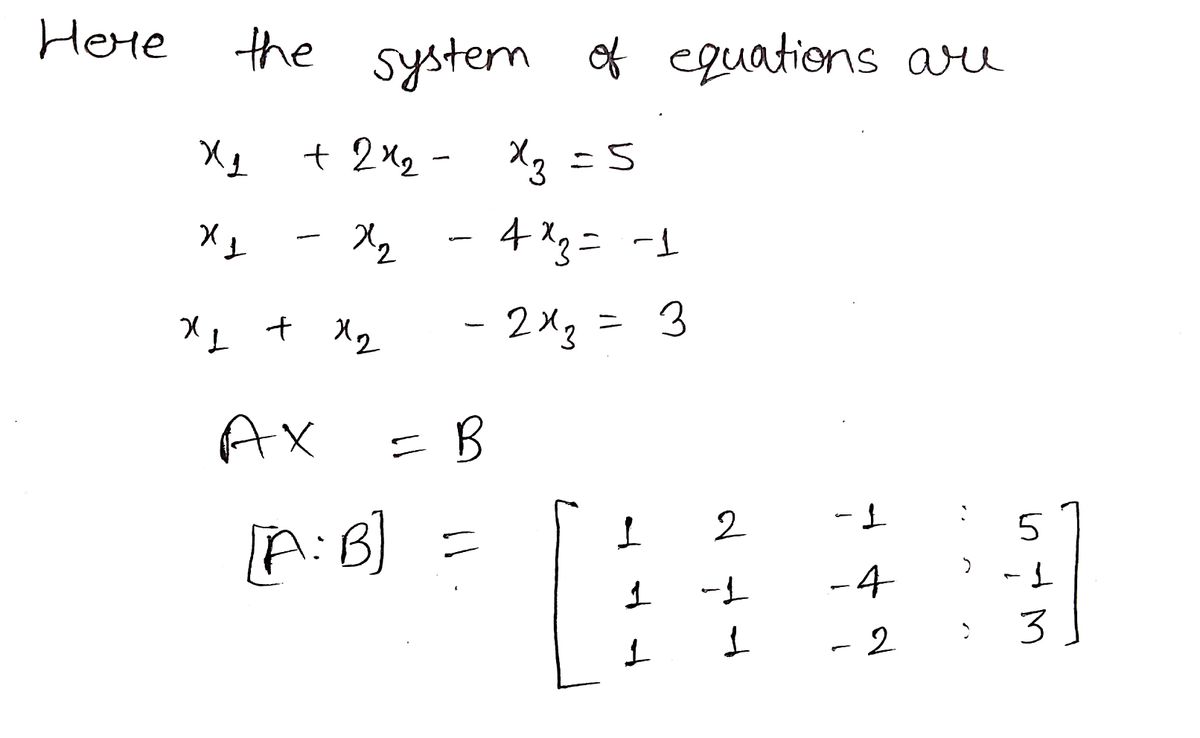 Here the system of equations are
x₁ + 2x₂ - x₃ = 5
x₁ - x₂ - 4x₃ = -1
x₁ + x₂ - 2x₃ = 3
AX = B
[A:B] = [ 1 2 -1 : 5
1 -1 -4 : -1
1 1 -2 : 3 ]